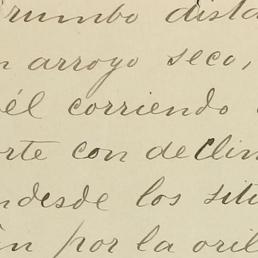 rumbo dista
n arroyo seco,
él corriendo
rte con declin
ndesde los siti
ín por la oril